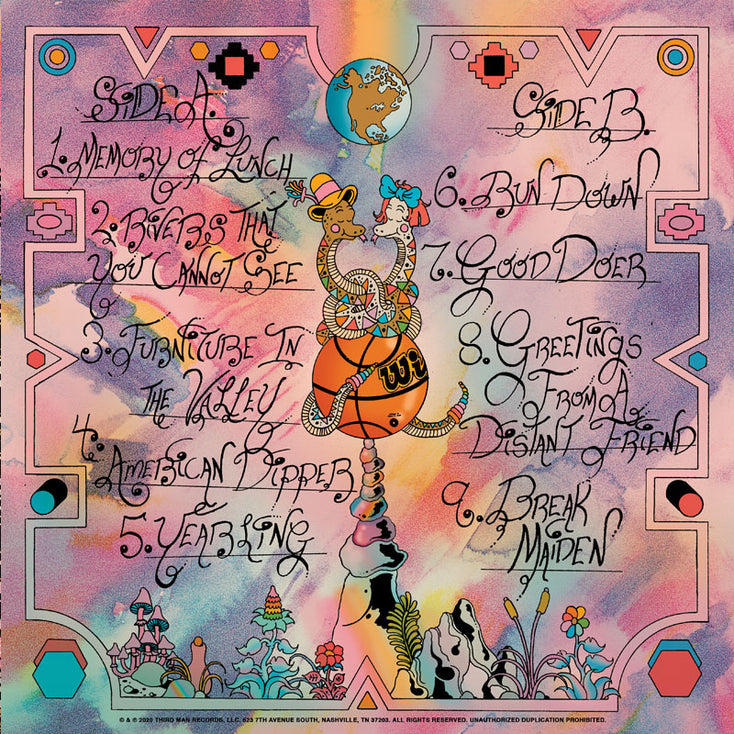 SIDE A.
1. MEMORY OF LUNCH
2. RIVERS THAT
YOU CANNOT SEE
3. FURNITURE IN
THE VALLEY
4. AMERICAN DIPPER
5. YEARLING
Wi
SIDE B.
6. RUN DOWN
7. GOOD DOER
8. GREETINGS
FROM A
DISTANT FRIEND
9. BREAK
MAIDEN
© & ℗ 2020 THIRD MAN RECORDS, LLC. 623 7TH AVENUE SOUTH, NASHVILLE, TN 37203. ALL RIGHTS RESERVED. UNAUTHORIZED DUPLICATION PROHIBITED.